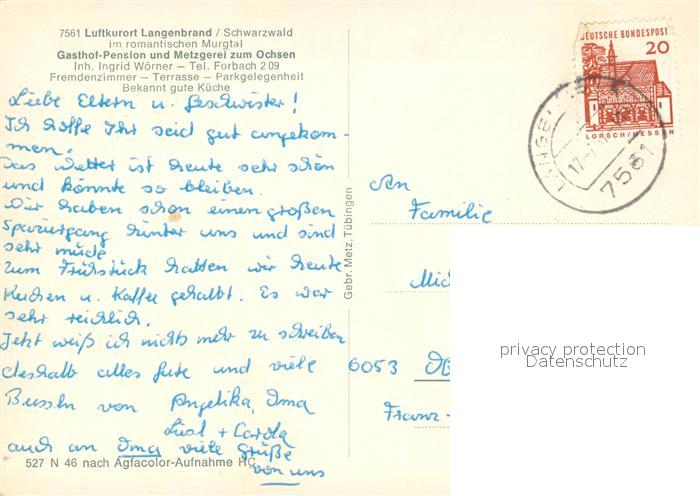 7561 Luftkurort Langenbrand / Schwarzwald
im romantischen Murgtal
Gasthof-Pension und Metzgerei zum Ochsen
Inh. Ingrid Wörner – Tel. Forbach 2 09
Fremdenzimmer – Terrasse – Parkgelegenheit
Bekannt gute Küche
Liebe Eltern u. Geschwister!
Ich hoffe Ihr seid gut angekom-
men.
Das Wetter ist heute sehr schön
und könnte so bleiben.
Wir haben schon einen großen
Spaziergang hinter uns und sind
sehr müde
Zum Frühstück hatten wir heute
Kuchen u. Kaffee gehabt. Es war
sehr reichlich.
Jetzt weiß ich nichts mehr zu schreiben
deshalb alles Gute und viele
Busseln von Angelika, Oma
Lisl + Carola
auch an Oma viele Grüße
von uns
527 N 46 nach Agfacolor-Aufnahme HC
Gebr. Metz, Tübingen
DEUTSCHE BUNDESPOST
20
LORSCH/HESSEN
7561
An
Familie
Mich
6053
Franz-
privacy protection
Datenschutz